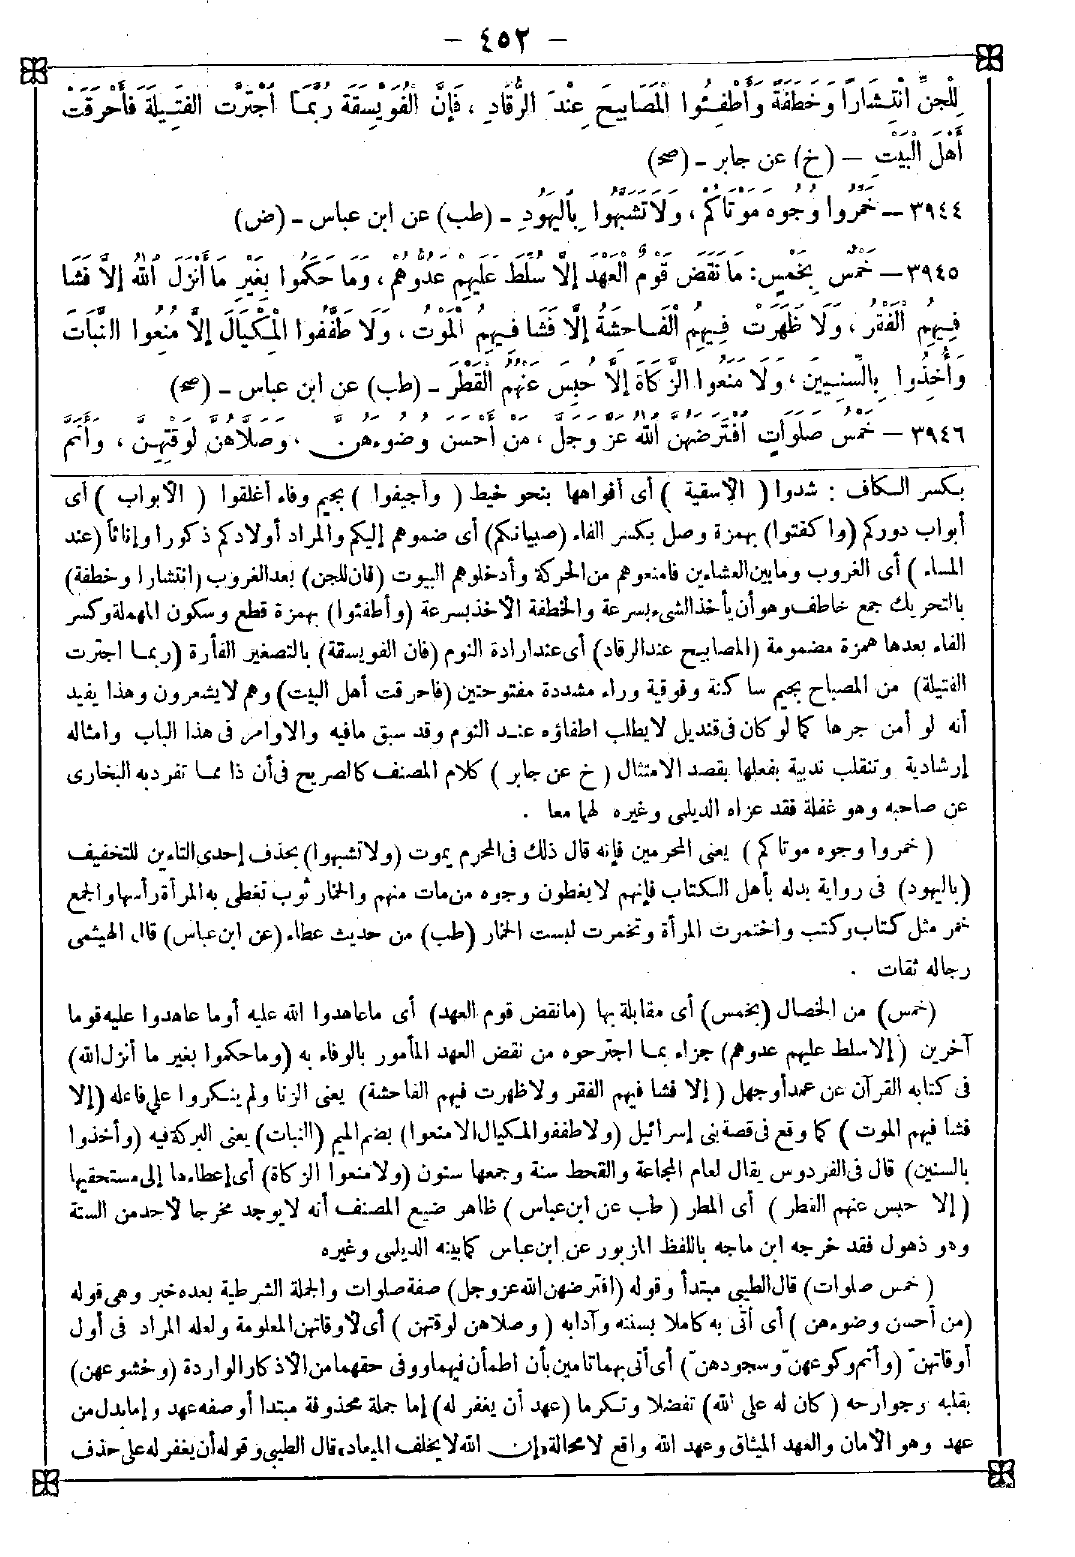 – ٤٥٢ –
لِلْجِنِّ انْتِشَارًا وَخَطْفَةً وَأَطْفِئُوا الْمَصَابِيحَ عِنْدَ الرُّقَادِ ، فَإِنَّ الْفُوَيْسِقَةَ رُبَّمَا اجْتَرَّتِ الفَتِيلَةَ فَأَحْرَقَتْ
أَهْلَ الْبَيْتِ – (خ) عن جابر – (صح)
٣٩٤٤ – خَمِّرُوا وُجُوهَ مَوْتَاكُمْ ، وَلَا تَشَبَّهُوا بِالْيَهُودِ – (طب) عن ابن عباس – (ض)
٣٩٤٥ – خَمْسٌ بِخَمْسٍ : مَا نَقَضَ قَوْمٌ الْعَهْدَ إِلَّا سُلِّطَ عَلَيْهِمْ عَدُوُّهُمْ ، وَمَا حَكَمُوا بِغَيْرِ مَا أَنْزَلَ اللهُ إِلَّا فَشَا
فِيهِمُ الْفَقْرُ ، وَلَا ظَهَرَتْ فِيهِمُ الْفَاحِشَةُ إِلَّا فَشَا فِيهِمُ الْمَوْتُ ، وَلَا طَفَّفُوا الْمِكْيَالَ إِلَّا مُنِعُوا النَّبَاتَ
وَأُخِذُوا بِالسِّنِينَ ، وَلَا مَنَعُوا الزَّكَاةَ إِلَّا حُبِسَ عَنْهُمُ الْقَطْرُ – (طب) عن ابن عباس – (صح)
٣٩٤٦ – خَمْسُ صَلَوَاتٍ افْتَرَضَهُنَّ اللهُ عَزَّ وَجَلَّ ، مَنْ أَحْسَنَ وُضُوءَهُنَّ ، وَصَلَّاهُنَّ لِوَقْتِهِنَّ ، وَأَتَمَّ
بكسر الكاف : شدوا ( الأسقية ) أى أفواهها بنحو خيط ( وأجيفوا ) بجيم وفاء أغلقوا ( الأبواب ) أى
أبواب دوركم (واكفتوا) بهمزة وصل بكسر الفاء (صبيانكم) أى ضموهم إليكم والمراد أولادكم ذكورا وإناثاً (عند
المساء ) أى الغروب وما بين العشاءين فامنعوهم من الحركة وأدخلوهم البيوت (فان للجن) بعد الغروب (انتشارا وخطفة)
بالتحريك جمع خاطف وهو أن يأخذ الشىء بسرعة والخطفة الأخذ بسرعة (وأطفئوا) بهمزة قطع وسكون المهملة وكسر
الفاء بعدها همزة مضمومة (المصابيح عند الرقاد) أى عند ارادة النوم (فان الفويسقة) بالتصغير الفأرة (ربما اجترت
الفتيلة) من المصباح بجيم ساكنة وفوقية وراء مشددة مفتوحتين (فاحرقت أهل البيت) وهم لا يشعرون وهذا يفيد
أنه لو أمن جرها كما لو كان فى قنديل لا يطلب اطفاؤه عند النوم وقد سبق مافيه والاوامر فى هذا الباب وامثاله
إرشادية وتنقلب ندبية بفعلها بقصد الامتثال ( خ عن جابر ) كلام المصنف كالصريح فى أن ذا مما تفرد به البخارى
عن صاحبه وهو غفلة فقد عزاه الديلمى وغيره لهما معا .
( خمروا وجوه موتاكم ) يعنى المحرمين فإنه قال ذلك فى المحرم يموت (ولا تشبهوا) بحذف إحدى التاءين للتخفيف
(باليهود) فى رواية بدله بأهل الكتاب فإنهم لا يغطون وجوه من مات منهم والخمار ثوب تغطى به المرأة رأسها والجمع
خمر مثل كتاب وكتب واختمرت المرأة وتخمرت لبست الخمار (طب) من حديث عطاء (عن ابن عباس) قال الهيثمى
رجاله ثقات .
(خمس) من الخصال (بخمس) أى مقابلة بها (مانقض قوم العهد) أى ماعاهدوا الله عليه أوما عاهدوا عليه قوما
آخرين (إلا سلط عليهم عدوهم) جزاء بما اجترحوه من نقض العهد المأمور بالوفاء به (وماحكموا بغير ما أنزل الله)
فى كتابه القرآن عن عمد أوجهل ( إلا فشا فيهم الفقر ولا ظهرت فيهم الفاحشة) يعنى الزنا ولم ينكروا على فاعله (إلا
فشا فيهم الموت ) كما وقع فى قصة بنى إسرائيل (ولا طففوا المكيال إلا منعوا) بضم الميم (النبات) يعنى البركة فيه (وأخذوا
بالسنين) قال فى الفردوس يقال لعام المجاعة والقحط سنة وجمعها سنون (ولا منعوا الزكاة) أى إعطاءها إلى مستحقيها
( إلا حبس عنهم القطر ) أى المطر ( طب عن ابن عباس ) ظاهر ضيع المصنف أنه لا يوجد مخرجا لأحد من الستة
وهو ذهول فقد خرجه ابن ماجه باللفظ المزبور عن ابن عباس كما بينه الديلمى وغيره
( خمس صلوات) قال الطيبي مبتدأ وقوله (افترضهن الله عز وجل) صفة صلوات والجملة الشرطية بعده خبر وهى قوله
(من أحسن وضوءهن ) أى أتى به كاملا بسننه وآدابه ( وصلاهن لوقتهن ) أى لأوقاتهن المعلومة ولعله المراد فى أول
أوقاتهنّ (وأتم وكوعهنّ وسجودهنّ) أى أتى بهما تامين بأن اطمأن فيهما ووفى حقهما من الأذكار الواردة (وخشوعهن)
بقلبه وجوارحه ( كان له على الله) تفضلا وتكرما (عهد أن يغفر له) إما جملة محذوفة مبتدا أو صفه عهد وإما بدل من
عهد وهو الأمان والعهد الميثاق وعهد الله واقع لا محالة «إن الله لا يخلف الميعاد» قال الطيبى وقوله أن يغفر له على حذف